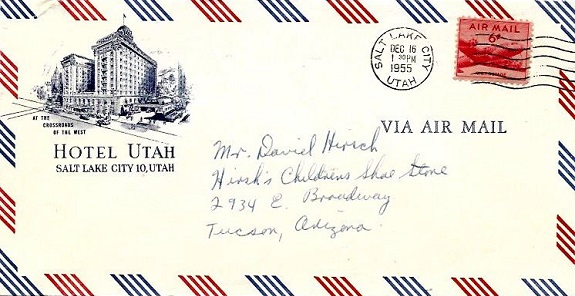 AT THE
CROSSROADS
OF THE WEST
HOTEL UTAH
SALT LAKE CITY 10, UTAH
SALT LAKE CITY
DEC 16
1 30 PM
1955
UTAH
AIR MAIL
6¢
VIA AIR MAIL
Mr. David Hirsch
Hirsh's Childrens Shoe Store
2934 E. Broadway
Tucson, Arizona